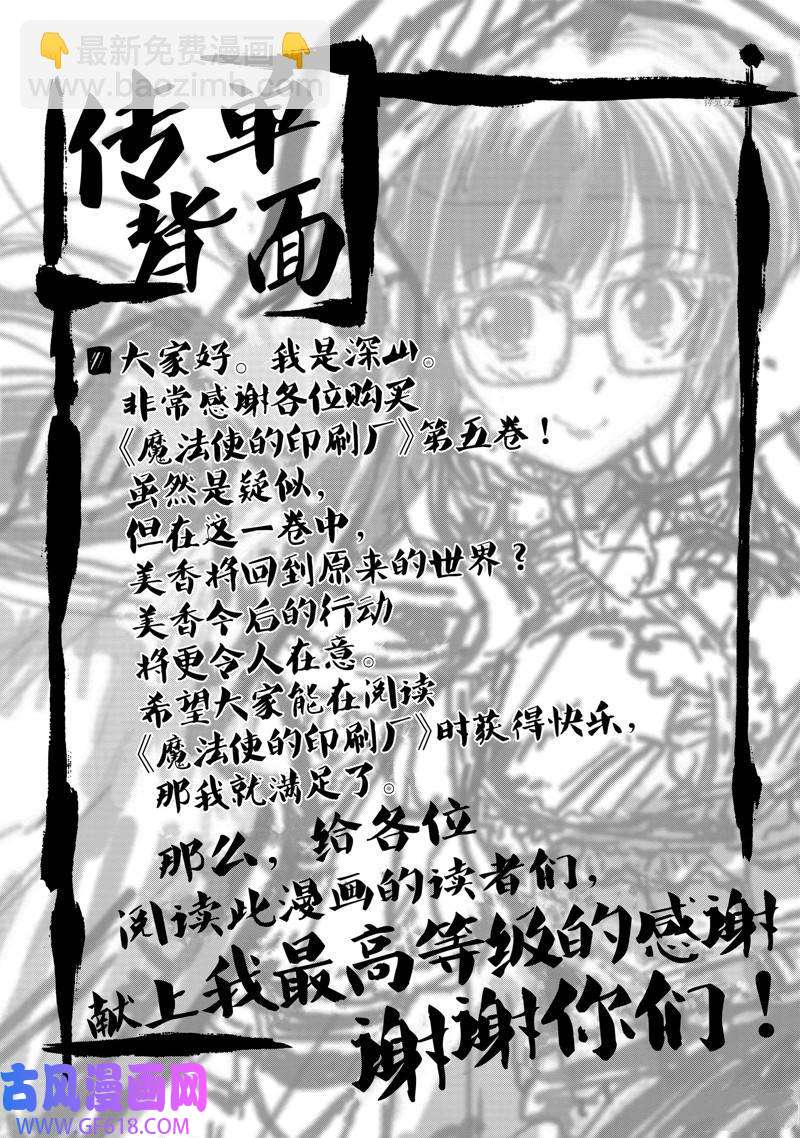 👇最新免费漫画👇
www.baozimh.com
传单
背面
大家好。我是深山。
非常感谢各位购买
《魔法使的印刷厂》第五卷！
虽然是疑似，
但在这一卷中，
美香将回到原来的世界？
美香今后的行动
将更令人在意。
希望大家能在阅读
《魔法使的印刷厂》时获得快乐，
那我就满足了。
那么，给各位
阅读此漫画的读者们，
献上我最高等级的感谢
谢谢你们！
古风漫画网
WWW.GF618.COM